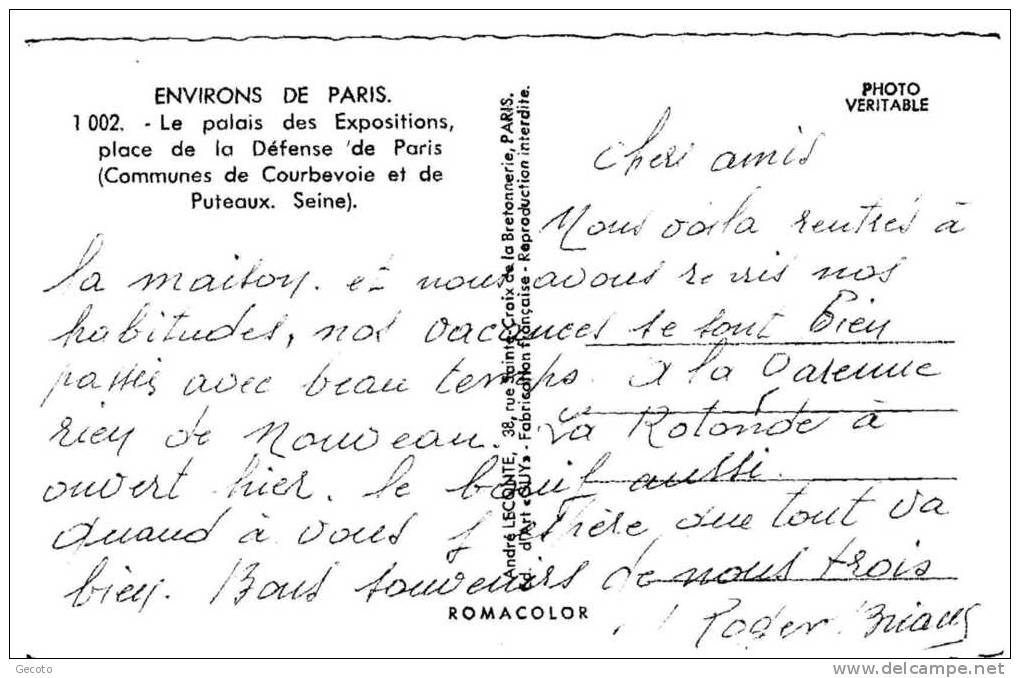 ENVIRONS DE PARIS.
1 002. - Le palais des Expositions,
place de la Défense de Paris
(Communes de Courbevoie et de
Puteaux. Seine).
PHOTO
VERITABLE
André LECONTE, 38, rue Sainte-Croix de la Bretonnerie, PARIS.
d'Art «GUY» - Fabrication française - Reproduction interdite.
Chers amis
Nous voila rentrés à
la maison. et nous avons repris nos
habitudes, nos vacances se sont bien
passés avec beau temps. A la Varenne
rien de nouveau. La Rotonde à
ouvert hier. le bœuf aussi.
Quand à vous j'espère que tout va
bien. Bons souvenirs de nous trois
Roger
ROMACOLOR
Gecoto
www.delcampe.net